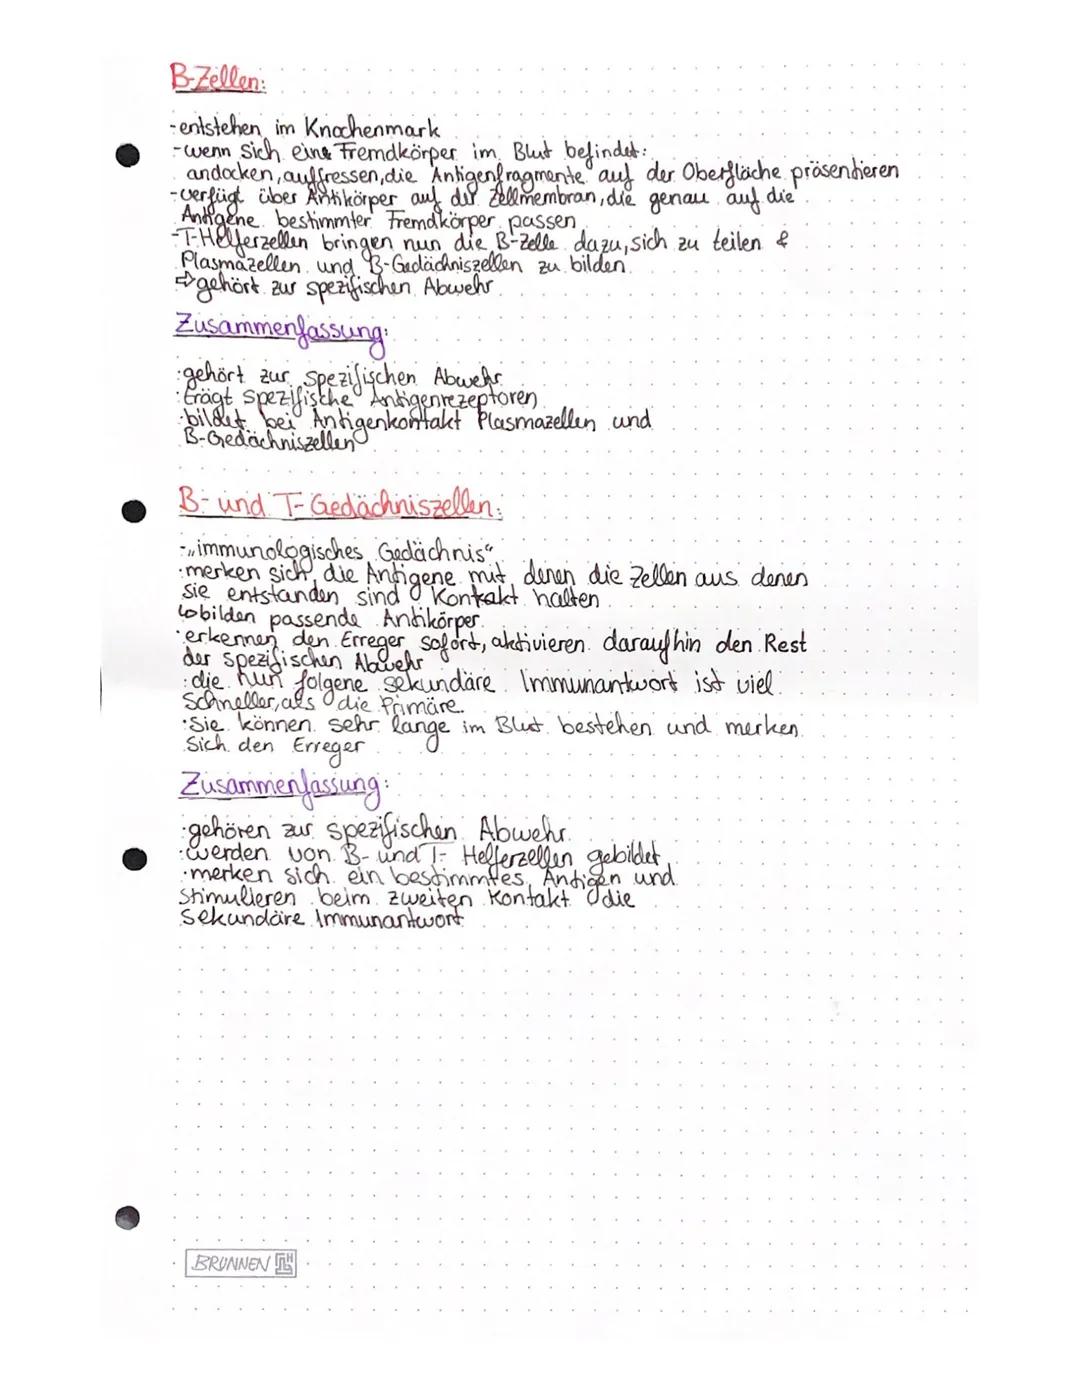 B-Zellen:
-entstehen im Knochenmark
-wenn sich eine Fremdkörper im Blut befindet:
andocken, auffressen, die Antigenfragmente auf der Oberfläche präsentieren
-verfügt über Antikörper auf der Zellmembran, die genau auf die
Antigene bestimmter Fremdkörper passen
-T-Helferzellen bringen nun die B-Zelle dazu, sich zu teilen &
Plasmazellen und B-Gedächniszellen zu bilden
⇨gehört zur spezifischen Abwehr
Zusammenfassung:
·gehört zur spezifischen Abwehr
·trägt spezifische Antigenrezeptoren
·bildet bei Antigenkontakt Plasmazellen und
B-Gedächniszellen
B- und T-Gedächniszellen:
-„immunologisches Gedächnis“
·merken sich, die Antigene mit denen die Zellen aus denen
sie entstanden sind Kontakt halten
↳bilden passende Antikörper
·erkennen den Erreger sofort, aktivieren daraufhin den Rest
der spezifischen Abwehr
·die nun folgene sekundäre Immunantwort ist viel
schneller, als die Primäre.
·Sie können sehr lange im Blut bestehen und merken
sich den Erreger
Zusammenfassung:
·gehören zur spezifischen Abwehr
·werden von B- und T- Helferzellen gebildet
·merken sich ein bestimmtes Antigen und
stimulieren beim zweiten Kontakt die
sekundäre Immunantwort
BRUNNEN